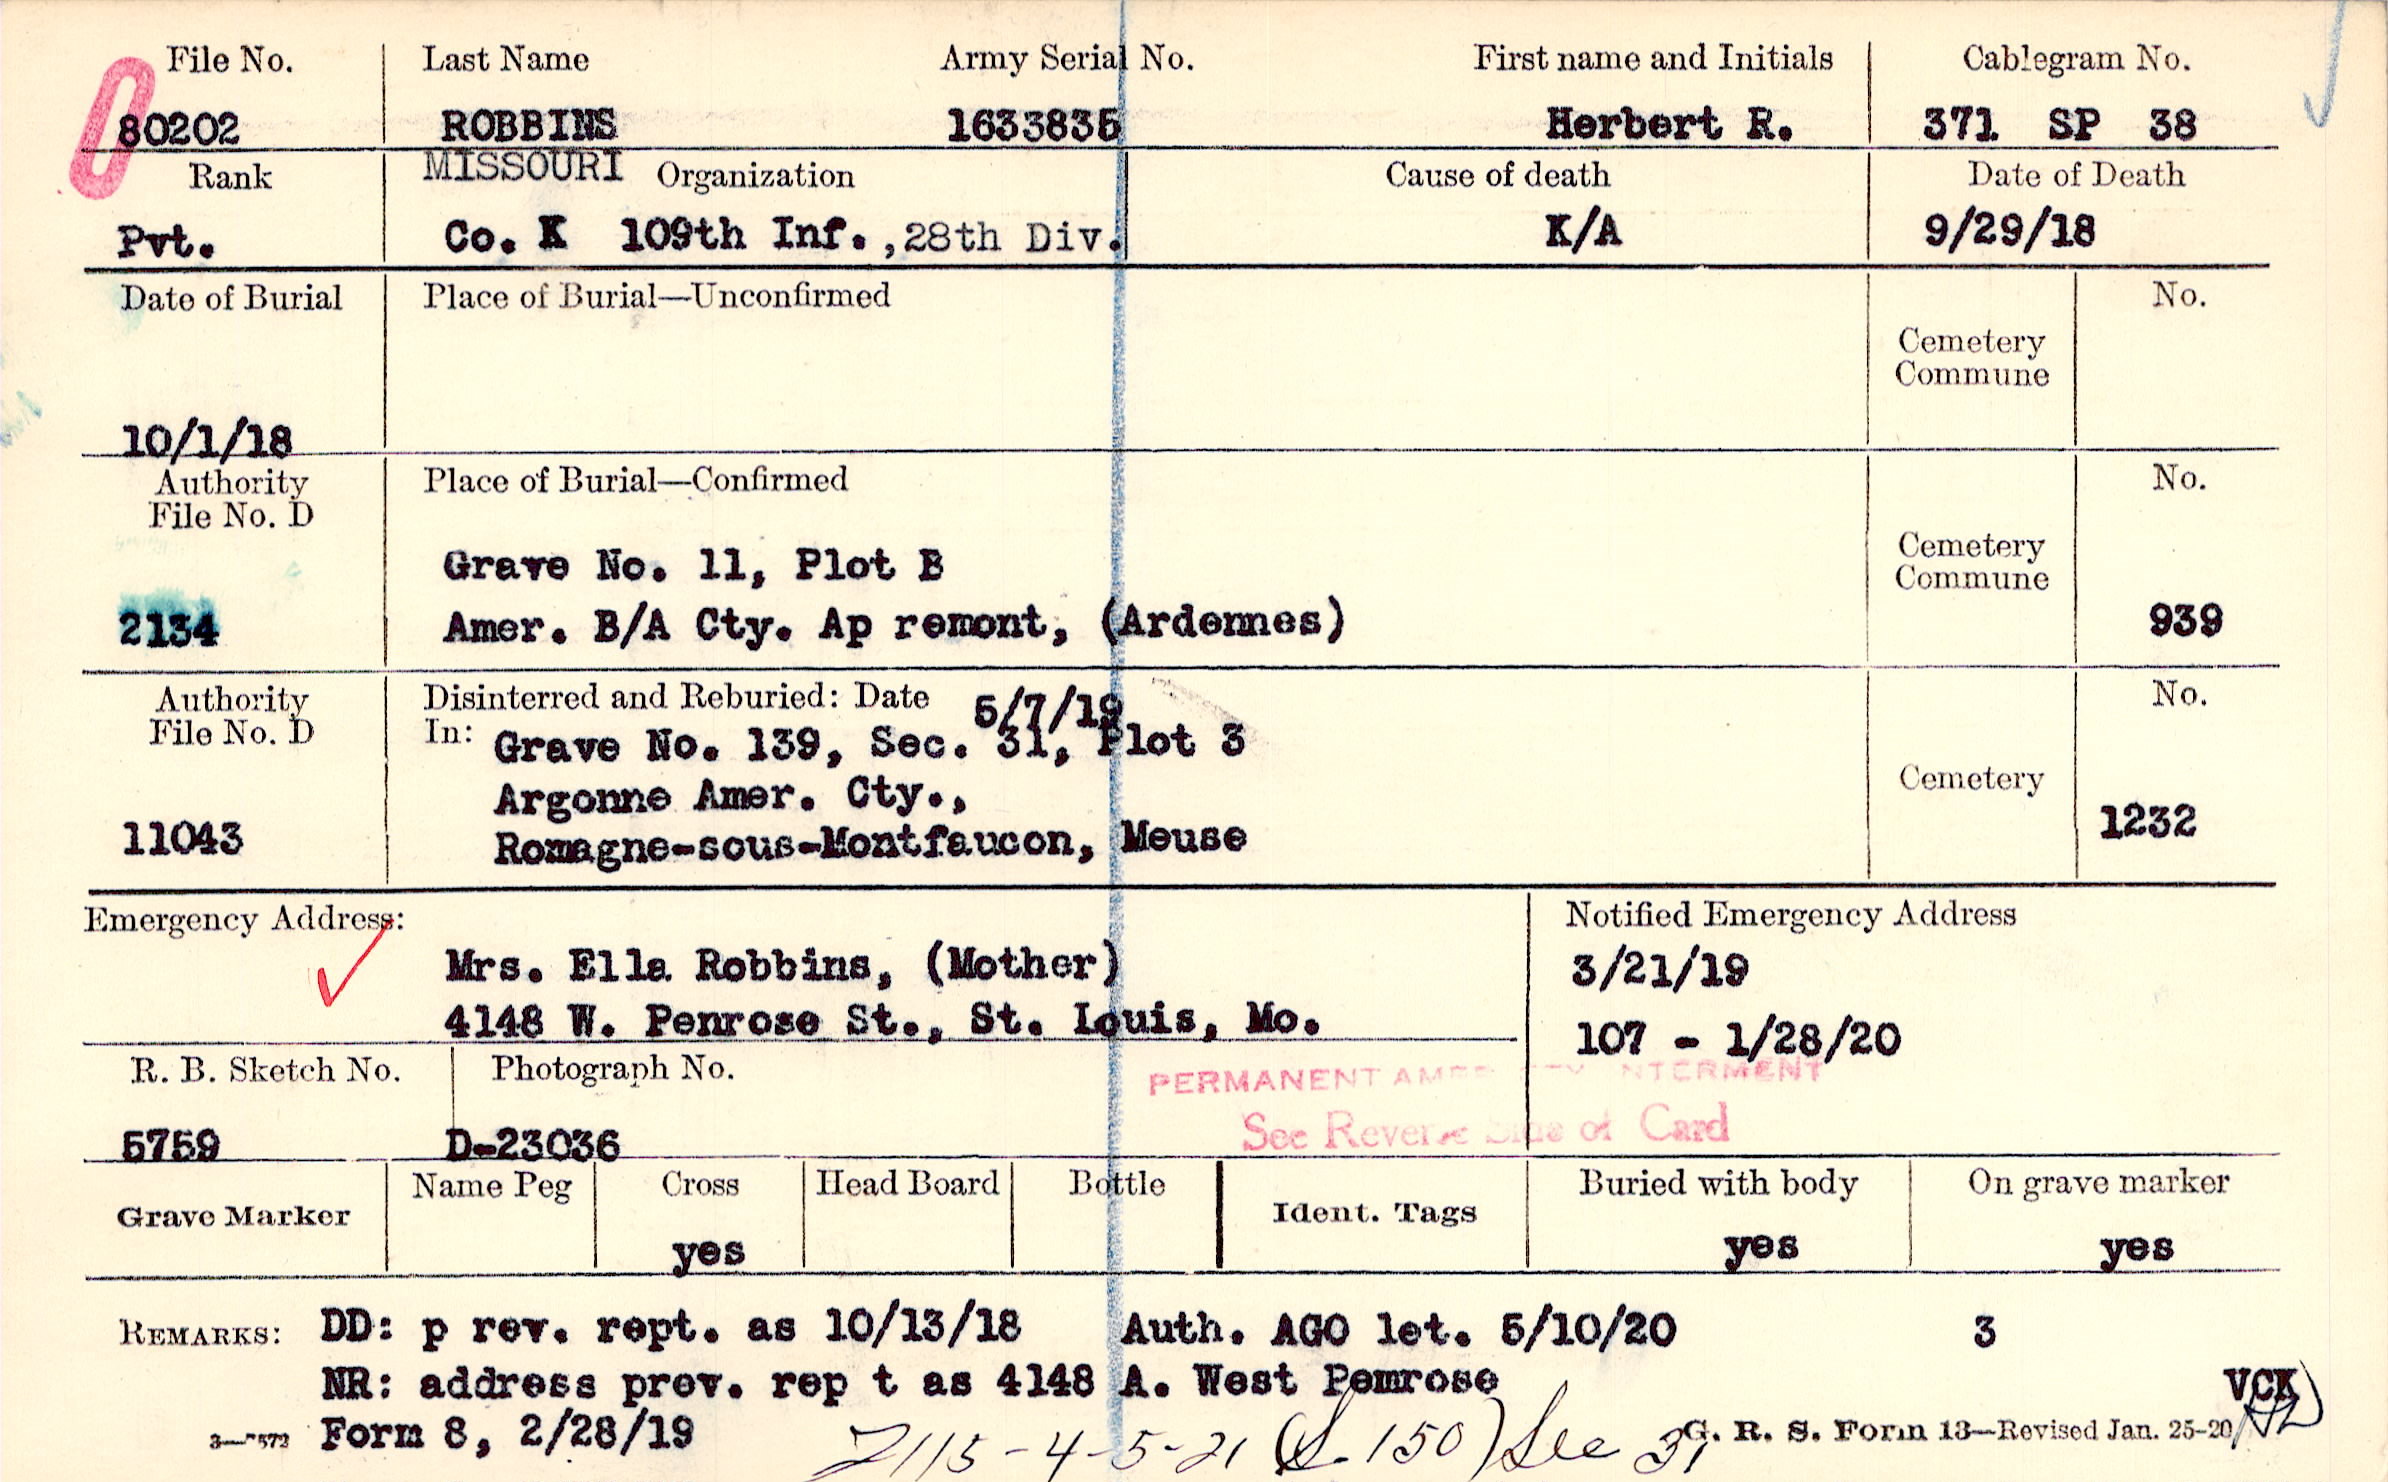 File No. Last Name Army Serial No. First name and Initials Cablegram No.
80202 ROBBINS 1633835 Herbert R. 371 SP 38
Rank MISSOURI Organization Cause of death Date of Death
Pvt. Co. K 109th Inf., 28th Div. K/A 9/29/18
Date of Burial Place of Burial—Unconfirmed No.
Cemetery
Commune
10/1/18
Authority Place of Burial—Confirmed No.
File No. D
Grave No. 11, Plot B Cemetery
Commune
2134 Amer. B/A Cty. Ap remont, (Ardennes) 939
Authority Disinterred and Reburied: Date 5/7/19 No.
File No. D In: Grave No. 139, Sec. 31, Plot 3
Argonne Amer. Cty., Cemetery
11043 Romagne-sous-Montfaucon, Meuse 1232
Emergency Address: Notified Emergency Address
Mrs. Ella Robbins, (Mother) 3/21/19
4148 W. Penrose St., St. Louis, Mo. 107 - 1/28/20
R. B. Sketch No. Photograph No. PERMANENT INTERMENT
5759 D-23036 See Reverse Side of Card
Grave Marker Name Peg Cross Head Board Bottle Ident. Tags Buried with body On grave marker
yes yes yes
REMARKS: DD: p rev. rept. as 10/13/18 Auth. AGO let. 5/10/20 3
NR: address prev. rep t as 4148 A. West Pemrose VCK
3—7572 Form 8, 2/28/19 G. R. S. Form 13—Revised Jan. 25-20
2115-4-5-21 (S. 150) See 31